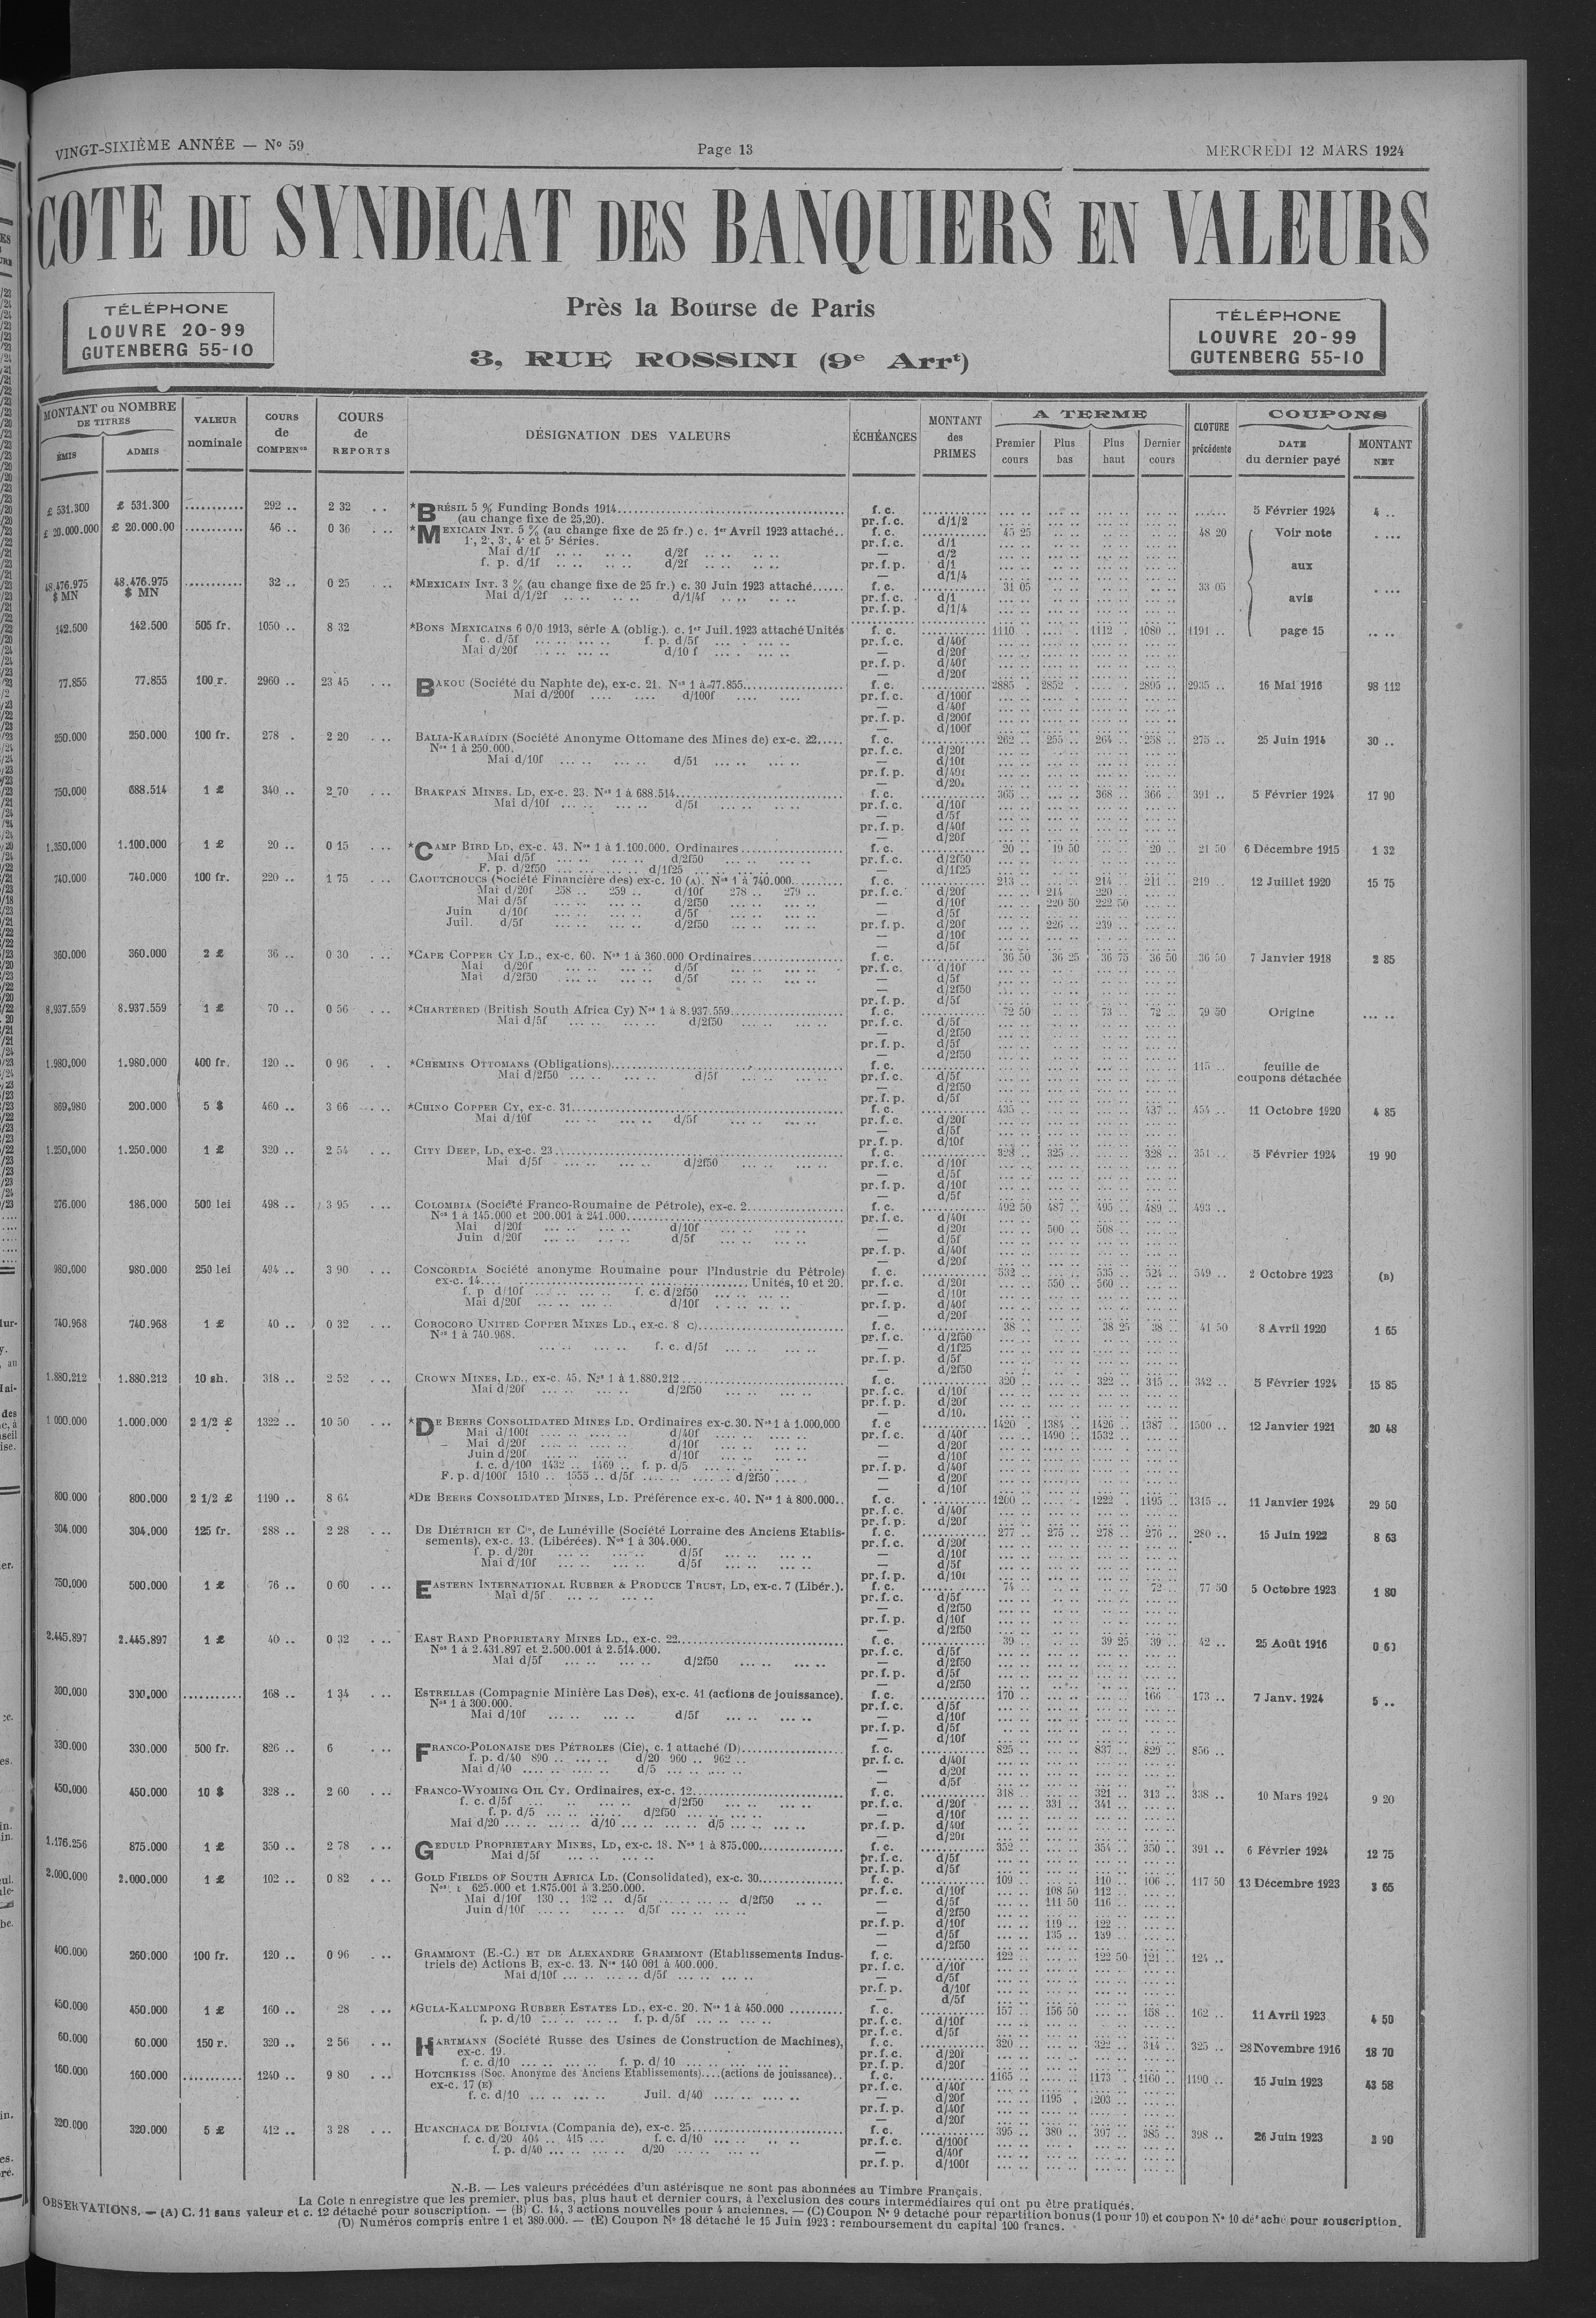 VINGT-SIXIÈME ANNÉE — N° 59
Page 13
MERCREDI 12 MARS 1924
COTE DU SYNDICAT DES BANQUIERS EN VALEURS
TÉLÉPHONE
LOUVRE 20-99
GUTENBERG 55-10
Près la Bourse de Paris
3, RUE ROSSINI (9e Arrt)
TÉLÉPHONE
LOUVRE 20-99
GUTENBERG 55-10
MONTANT ou NOMBRE DE TITRES
ÉMIS
ADMIS
VALEUR nominale
COURS de COMPENon
COURS de REPORTS
DÉSIGNATION DES VALEURS
ÉCHÉANCES
MONTANT des PRIMES
A TERME
Premier cours
Plus bas
Plus haut
Dernier cours
CLOTURE précédente
COUPONS
DATE du dernier payé
MONTANT NET
£ 531.300 £ 531.300 ........... 292 .. 2 32 *BRÉSIL 5 % Funding Bonds 1914 f. c. 5 Février 1924 4 ..
(au change fixe de 25,20). pr. f. c. d/1/2
£ 20.000.000 £ 20.000.00 ........... 46 .. 0 36 *MEXICAIN INT. 5 % (au change fixe de 25 fr.) c. 1er Avril 1923 attaché.. f. c. 45 25 48 20 Voir note
1e, 2e, 3e, 4e et 5e Séries. pr. f. c. d/1
Mai d/1f d/2f — d/2
f. p. d/1f d/2f pr. f. p. d/1 aux
— d/1/4
48.476.975 $ MN 48.476.975 $ MN ........... 32 .. 0 25 *MEXICAIN INT. 3 % (au change fixe de 25 fr.) c. 30 Juin 1923 attaché...... f. c. 31 05 33 05
Mai d/1/2f d/1/4f pr. f. c. d/1 avis
pr. f. p. d/1/4
142.500 142.500 505 fr. 1050 .. 8 32 *BONS MEXICAINS 6 0/0 1913, série A (oblig.). c. 1er Juil. 1923 attaché Unités f. c. 1110 1112 1080 1191 .. page 15
f. c. d/5f f. p. d/5f pr. f. c. d/40f
Mai d/20f d/10 f — d/20f
pr. f. p. d/40f
— d/20f
77.855 77.855 100 r. 2960 .. 23 45 BAKOU (Société du Naphte de), ex-c. 21. Nos 1 à 77.855 f. c. 2885 2852 2895 2935 .. 16 Mai 1916 98 112
Mai d/200f d/100f pr. f. c. d/100f
— d/40f
pr. f. p. d/200f
— d/100f
250.000 250.000 100 fr. 278 2 20 BALIA-KARAÏDIN (Société Anonyme Ottomane des Mines de) ex-c. 22..... f. c. 262 .. 255 .. 264 .. 258 .. 275 .. 25 Juin 1914 30 ..
Nos 1 à 250.000. pr. f. c. d/20f
Mai d/10f d/5f — d/10f
pr. f. p. d/40f
— d/20f
750.000 688.514 1 £ 340 .. 2 70 BRAKPAN MINES, LD, ex-c. 23. Nos 1 à 688.514 f. c. 365 368 .. 366 .. 391 .. 5 Février 1924 17 90
Mai d/10f d/5f pr. f. c. d/10f
— d/5f
pr. f. p. d/40f
— d/20f
1.350.000 1.100.000 1 £ 20 .. 0 15 *CAMP BIRD LD, ex-c. 43. Nos 1 à 1.100.000. Ordinaires f. c. 20 .. 19 50 20 .. 21 50 6 Décembre 1915 1 32
Mai d/5f d/2f50 pr. f. c. d/2f50
F. p. d/2f50 d/1f25 — d/1f25
740.000 740.000 100 fr. 220 .. 1 75 CAOUTCHOUCS (Société Financière des) ex-c. 10 (A). Nos 1 à 740.000 f. c. 213 .. 214 .. 211 .. 219 .. 12 Juillet 1920 15 75
Mai d/20f 258 .. 259 .. d/10f 278 .. 279 .. pr. f. c. d/20f 214 .. 220 ..
Mai d/5f d/2f50 — d/10f 220 50 222 50
Juin d/10f d/5f — d/5f
Juil. d/5f d/2f50 pr. f. p. d/20f 226 .. 239 ..
— d/10f
— d/5f
360.000 360.000 2 £ 36 .. 0 30 *CAPE COPPER CY LD., ex-c. 60. Nos 1 à 360.000 Ordinaires f. c. 36 50 36 25 36 75 36 50 36 50 7 Janvier 1918 2 85
Mai d/20f d/5f pr. f. c. d/10f
Mai d/2f50 d/5f — d/5f
— d/2f50
pr. f. p. d/5f
8.937.559 8.937.559 1 £ 70 .. 0 56 *CHARTERED (British South Africa Cy) Nos 1 à 8.937.559 f. c. 72 50 73 .. 72 .. 79 50 Origine
Mai d/5f d/2f50 pr. f. c. d/5f
— d/2f50
pr. f. p. d/5f
— d/2f50
1.980.000 1.980.000 400 fr. 120 .. 0 96 *CHEMINS OTTOMANS (Obligations) f. c. 115 .. feuille de
Mai d/2f50 d/5f pr. f. c. d/5f coupons détachée
— d/2f50
pr. f. p. d/5f
869.980 200.000 5 $ 460 .. 3 66 *CHINO COPPER CY, ex-c. 31 f. c. 435 .. 437 .. 454 .. 11 Octobre 1920 4 85
Mai d/10f d/5f pr. f. c. d/20f
— d/5f
pr. f. p. d/10f
1.250.000 1.250.000 1 £ 320 .. 2 54 CITY DEEP, LD, ex-c. 23 f. c. 328 .. 325 .. 328 .. 351 .. 5 Février 1924 19 90
Mai d/5f d/2f50 pr. f. c. d/10f
— d/5f
pr. f. p. d/10f
— d/5f
276.000 186.000 500 lei 498 .. 3 95 COLOMBIA (Société Franco-Roumaine de Pétrole), ex-c. 2 f. c. 492 50 487 .. 495 .. 489 .. 493 ..
Nos 1 à 145.000 et 200.001 à 241.000 pr. f. c. d/40f
Mai d/20f d/10f — d/20f 500 .. 508 ..
Juin d/20f d/5f — d/5f
pr. f. p. d/40f
— d/20f
980.000 980.000 250 lei 494 .. 3 90 CONCORDIA Société anonyme Roumaine pour l'Industrie du Pétrole) f. c. 532 .. 535 .. 524 .. 549 .. 2 Octobre 1923 (B)
ex-c. 14 Unités, 10 et 20. pr. f. c. d/20f 550 .. 560 ..
f. p d/10f f. c. d/2f50 — d/10f
Mai d/20f d/10f pr. f. p. d/40f
— d/20f
740.968 740.968 1 £ 40 .. 0 32 COROCORO UNITED COPPER MINES LD., ex-c. 8 C) f. c. 38 .. 38 25 38 .. 41 50 8 Avril 1920 1 65
Nos 1 à 740.968. pr. f. c. d/2f50
f. c. d/5f — d/1f25
pr. f. p. d/5f
— d/2f50
1.880.212 1.880.212 10 sh. 318 .. 2 52 CROWN MINES, LD., ex-c. 45. Nos 1 à 1.880.212 f. c. 320 .. 322 .. 315 .. 342 .. 5 Février 1924 15 85
Mai d/20f d/2f50 pr. f. c. d/10f
pr. f. p. d/20f
— d/10f
1 000.000 1.000.000 2 1/2 £ 1322 .. 10 50 *DE BEERS CONSOLIDATED MINES LD. Ordinaires ex-c. 30. Nos 1 à 1.000.000 f. c 1420 1384 .. 1426 .. 1387 .. 1500 .. 12 Janvier 1921 20 48
Mai d/100f d/40f pr. f. c. d/40f 1490 .. 1532 ..
Mai d/20f d/10f — d/20f
Juin d/20f d/10f — d/10f
f. c. d/100 1432 .. 1469 .. f. p. d/5 pr. f. p. d/40f
F. p. d/100f 1510 .. 1555 .. d/5f d/2f50 — d/20f
— d/10f
800.000 800.000 2 1/2 £ 1190 .. 8 64 *DE BEERS CONSOLIDATED MINES, LD. Préférence ex-c. 40. Nos 1 à 800.000.. f. c. 1200 1222 1195 .. 1315 .. 11 Janvier 1924 29 50
pr. f. c. d/40f
pr. f. p. d/20f
304.000 304.000 125 fr. 288 .. 2 28 DE DIÉTRICH ET Cie, de Lunéville (Société Lorraine des Anciens Etablis- f. c. 277 .. 275 .. 278 .. 276 .. 280 .. 15 Juin 1922 8 63
sements), ex-c. 13. (Libérées). Nos 1 à 304.000. pr. f. c. d/20f
f. p. d/20f d/5f — d/10f
Mai d/10f d/5f — d/5f
pr. f. p. d/10f
750.000 500.000 1 £ 76 .. 0 60 EASTERN INTERNATIONAL RUBBER & PRODUCE TRUST, LD, ex-c. 7 (Libér.). f. c. 74 .. 72 .. 77 50 5 Octobre 1923 1 80
Mai d/5f pr. f. c. d/5f
— d/2f50
pr. f. p. d/10f
— d/2f50
2.445.897 2.445.897 1 £ 40 .. 0 32 EAST RAND PROPRIETARY MINES LD., ex-c. 22 f. c. 39 39 25 39 .. 42 .. 25 Août 1916
Nos 1 à 2.431.897 et 2.500.001 à 2.514.000. pr. f. c. d/5f
Mai d/5f d/2f50 — d/2f50
pr. f. p. d/5f
— d/2f50
300.000 300.000 ........... 168 .. 1 34 ESTRELLAS (Compagnie Minière Las Dos), ex-c. 41 (actions de jouissance). f. c. 170 .. 166 .. 173 .. 7 Janv. 1924 5 ..
Nos 1 à 300.000. pr. f. c. d/5f
Mai d/10f d/5f — d/10f
pr. f. p. d/5f
— d/10f
330.000 330.000 500 fr. 826 .. 6 FRANCO-POLONAISE DES PÉTROLES (Cie), c. 1 attaché (D) f. c. 825 .. 837 .. 829 .. 856 ..
f. p. d/40 890 d/20 960 .. 962 .. pr. f. c. d/40f
Mai d/40 d/5 — d/20f
— d/5f
450.000 450.000 10 $ 328 .. 2 60 FRANCO-WYOMING OIL CY. Ordinaires, ex-c. 12 f. c. 318 .. 321 .. 313 .. 338 .. 10 Mars 1924 9 20
f. c. d/5f d/2f50 pr. f. c. d/20f 331 .. 341 ..
f. p. d/5 d/2f50 — d/10f
Mai d/20 d/10 d/5 pr. f. p. d/40f
— d/20f
1.176.256 875.000 1 £ 350 .. 2 78 GEDULD PROPRIETARY MINES, LD, ex-c. 18. Nos 1 à 875.000 f. c. 352 .. 354 .. 350 .. 391 .. 6 Février 1924 12 75
Mai d/5f pr. f. c. d/5f
pr. f. p. d/5f
2.000.000 2.000.000 1 £ 102 .. 0 82 GOLD FIELDS OF SOUTH AFRICA LD. (Consolidated), ex-c. 30 f. c. 109 .. 110 .. 106 .. 117 50 13 Décembre 1923 3 65
Nos 1 625.000 et 1.875.001 à 3.250.000. pr. f. c. d/10f 108 50 112 ..
Mai d/10f 130 .. 132 .. d/5f d/2f50 — d/5f 111 50 116 ..
Juin d/10f d/5f — d/2f50
pr. f. p. d/10f 119 .. 122 ..
— d/5f 135 .. 139 ..
— d/2f50
400.000 260.000 100 fr. 120 .. 0 96 GRAMMONT (E.-C.) ET DE ALEXANDRE GRAMMONT (Etablissements Indus- f. c. 122 .. 122 50 121 .. 124 ..
triels de) Actions B, ex-c. 13. Nos 140 001 à 400.000. pr. f. c. d/10f
Mai d/10f d/5f — d/5f
pr. f. p. d/10f
— d/5f
450.000 450.000 1 £ 160 .. 28 *GULA-KALUMPONG RUBBER ESTATES LD., ex-c. 20. Nos 1 à 450.000 f. c. 157 156 50 158 .. 162 .. 11 Avril 1923 4 50
f. p. d/10 f. p. d/5f pr. f. c. d/10f
pr. f. c. d/5f
60.000 60.000 150 r. 320 .. 2 56 HARTMANN (Société Russe des Usines de Construction de Machines), f. c. 320 322 .. 314 .. 325 .. 28 Novembre 1916 18 70
ex-c. 19. pr. f. c. d/20f
f. c. d/10 f. p. d/ 10 pr. f. p. d/20f
160.000 160.000 ........... 1240 .. 9 80 HOTCHKISS (Soc. Anonyme des Anciens Etablissements)....(actions de jouissance).. f. c. 1165 1173 1160 .. 1190 .. 15 Juin 1923 43 58
ex-c. 17 (E) pr. f. c. d/40f
f. c. d/10 Juil. d/40 — d/20f 1195 1203
pr. f. p. d/40f
— d/20f
320.000 320.000 5 £ 412 .. 3 28 HUANCHACA DE BOLIVIA (Compania de), ex-c. 25 f. c. 395 .. 380 .. 397 .. 385 .. 398 .. 26 Juin 1923 3 90
f. c. d/20 404 .. 415 f. c. d/10 pr. f. c. d/100f
f. p. d/40 d/20 — d/40f
pr. f. p. d/100f
N.-B. — Les valeurs précédées d'un astérisque ne sont pas abonnées au Timbre Français.
La Cote n enregistre que les premier, plus bas, plus haut et dernier cours, à l'exclusion des cours intermédiaires qui ont pu être pratiqués.
OBSERVATIONS. — (A) C. 11 sans valeur et c. 12 détaché pour souscription. — (B) C. 14, 3 actions nouvelles pour 4 anciennes. — (C) Coupon N° 9 detaché pour répartition bonus (1 pour 10) et coupon N° 10 détaché pour souscription.
(D) Numéros compris entre 1 et 380.000. — (E) Coupon N° 18 détaché le 15 Juin 1923 : remboursement du capital 100 francs.